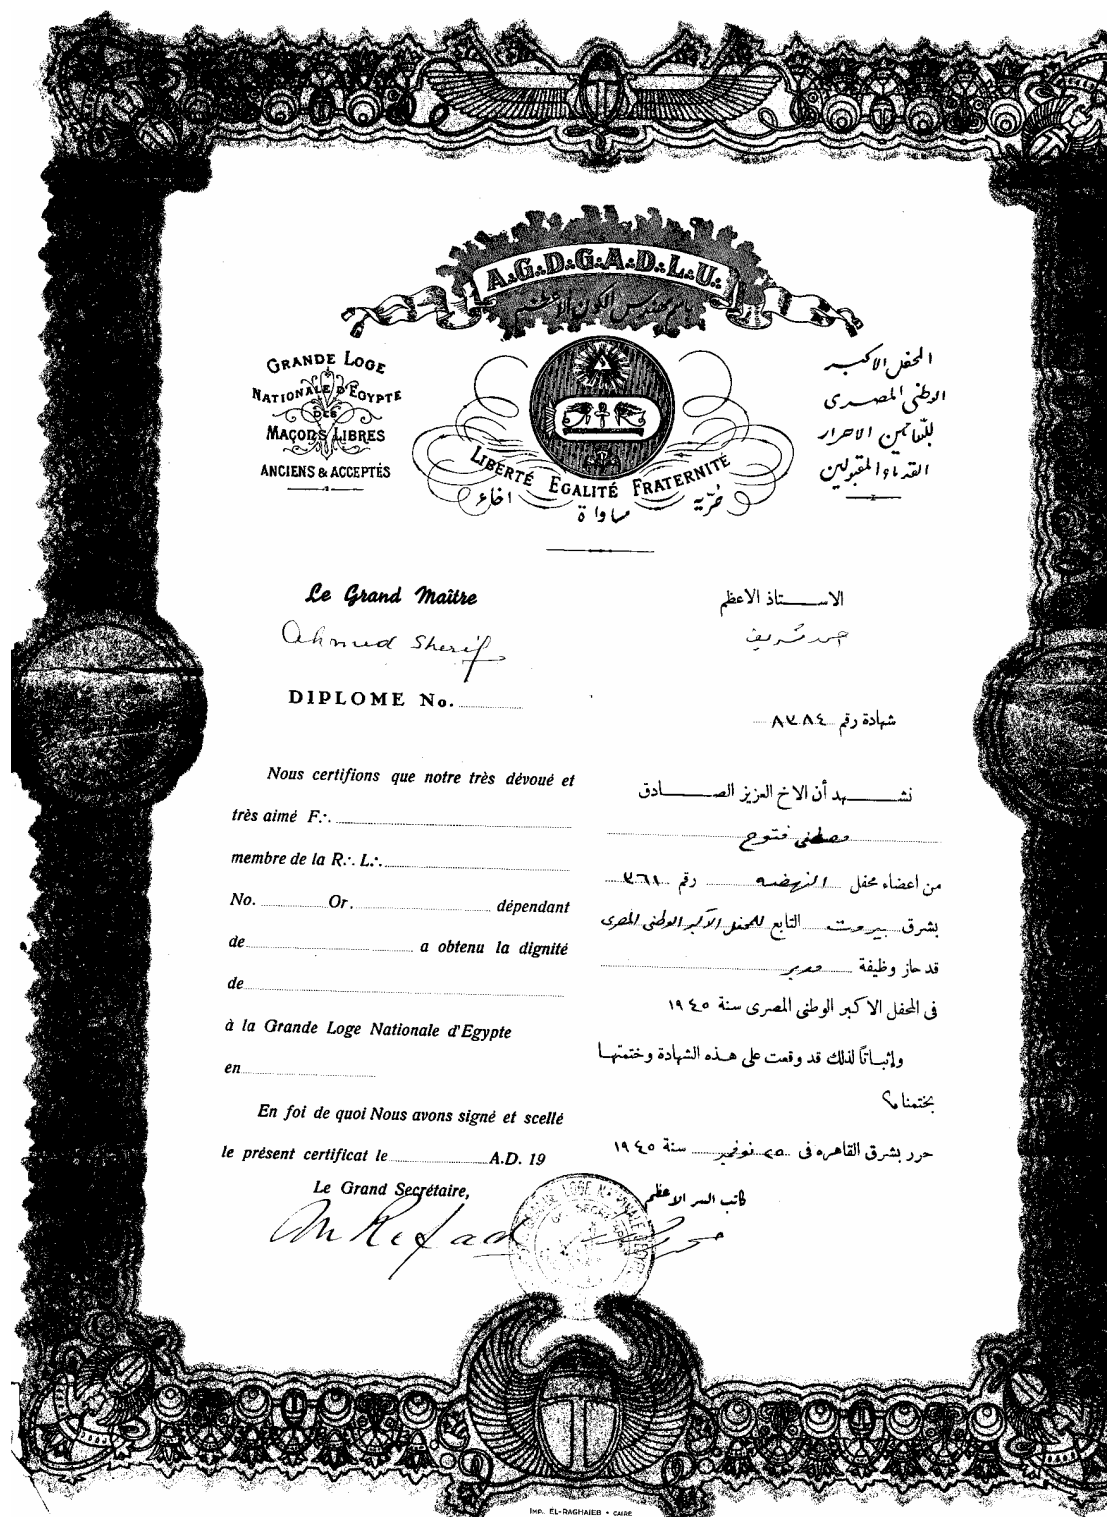 A∴G∴D∴G∴A∴D∴L∴U∴
باسم مهندس الكون الاعظم
GRANDE LOGE
NATIONALE D'EGYPTE
DES
MAÇONS LIBRES
ANCIENS & ACCEPTÉS
المحفل الاكبر
الوطنى المصرى
للبنائين الاحرار
القدماء المقبولين
LIBERTÉ EGALITÉ FRATERNITÉ
حرّيه مساواة اخاء
Le Grand Maître
Ahmed Sherif
DIPLOME No.
Nous certifions que notre très dévoué et
très aimé F∴
membre de la R∴ L∴
No. Or. dépendant
de a obtenu la dignité
de
à la Grande Loge Nationale d'Egypte
en
En foi de quoi Nous avons signé et scellé
le présent certificat le A.D. 19
Le Grand Secrétaire,
الاســتاذ الاعظم
احمد شريف
شهادة رقم ٨٧٨٤
نشــهد أن الاخ العزيز الصــادق
مصطفى فتوح
من اعضاء محفل النهضه رقم ٣٦١
بشرق بيروت التابع للمحفل الأكبر الوطنى المصرى
قد حاز وظيفة مدير
فى المحفل الاكبر الوطنى المصرى سنة ١٩٤٥
وإثباتاً لذلك قد وقعت على هـذه الشهادة وختمتها
بختمنا
حرر بشرق القاهره فى ٢٥ نوفمبر سنة ١٩٤٥
كاتب السر الاعظم
IMP. EL-RAGHAIEB • CAIRE